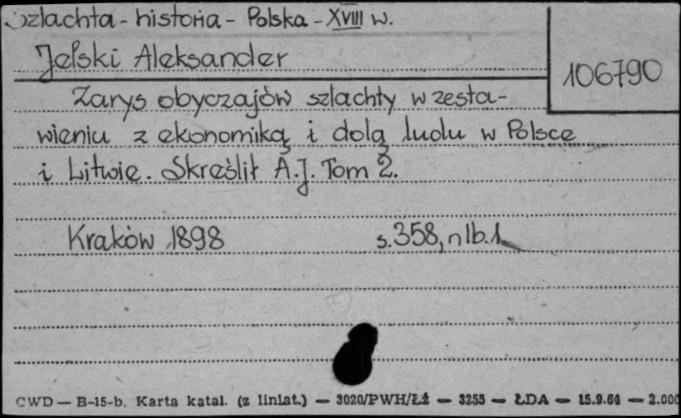 Szlachta - historia - Polska - XVIII w.
Jelski Aleksander
106790
Zarys obyczajów szlachty w zesta-
wieniu z ekonomiką i dolą ludu w Polsce
i Litwie. Skreślił A.J. Tom 2.
Kraków 1898 s. 358, nlb. 1.
CWD — B-15-b. Karta katal. (z liniat.) — 3020/PWH/Łż — 3255 — ŁDA — 15.9.60 — 2.000